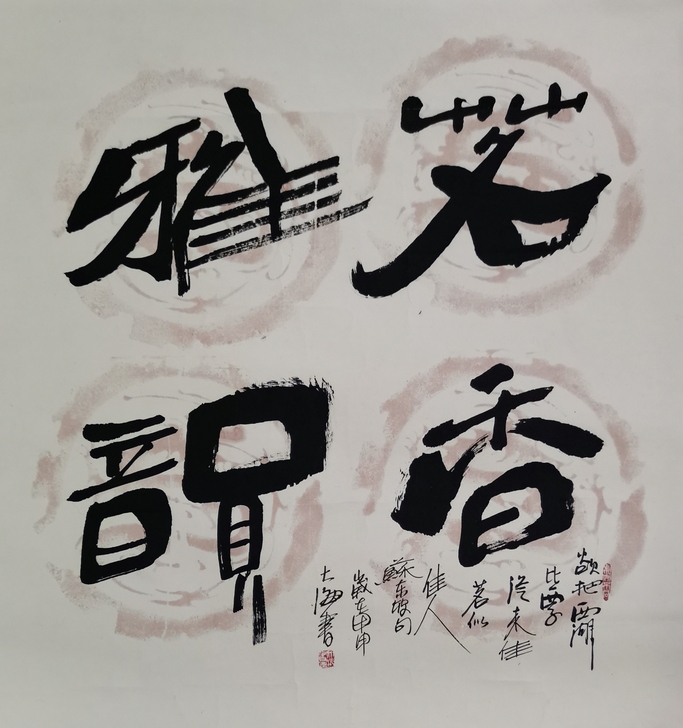 茗香
雅韻
欲把西湖
比西子
從来佳
茗似
佳人
蘇东坡句
歲在甲申
大海書